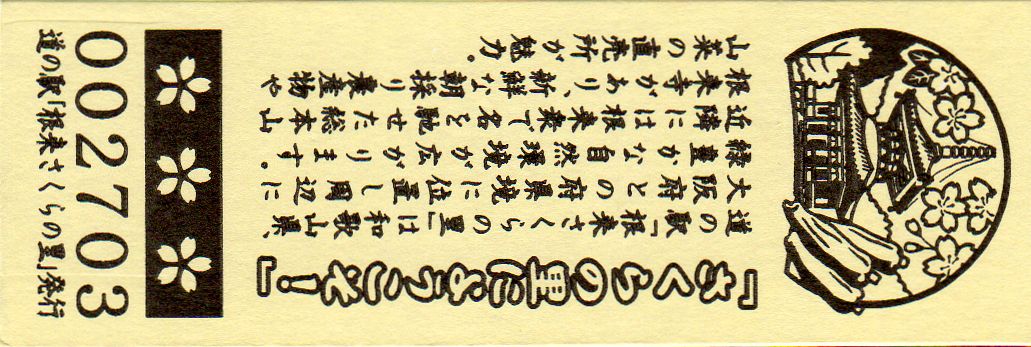 「さくらの里にようこそ！」
道の駅「根来さくらの里」は和歌山県、
大阪府との府県境に位置し周辺に
緑豊かな自然環境が広がります。
近隣には根来塗で名を馳せた総本山
根来寺があり、新鮮な朝採り農産物や
山菜の直売所が魅力。
002703
道の駅「根来さくらの里」発行